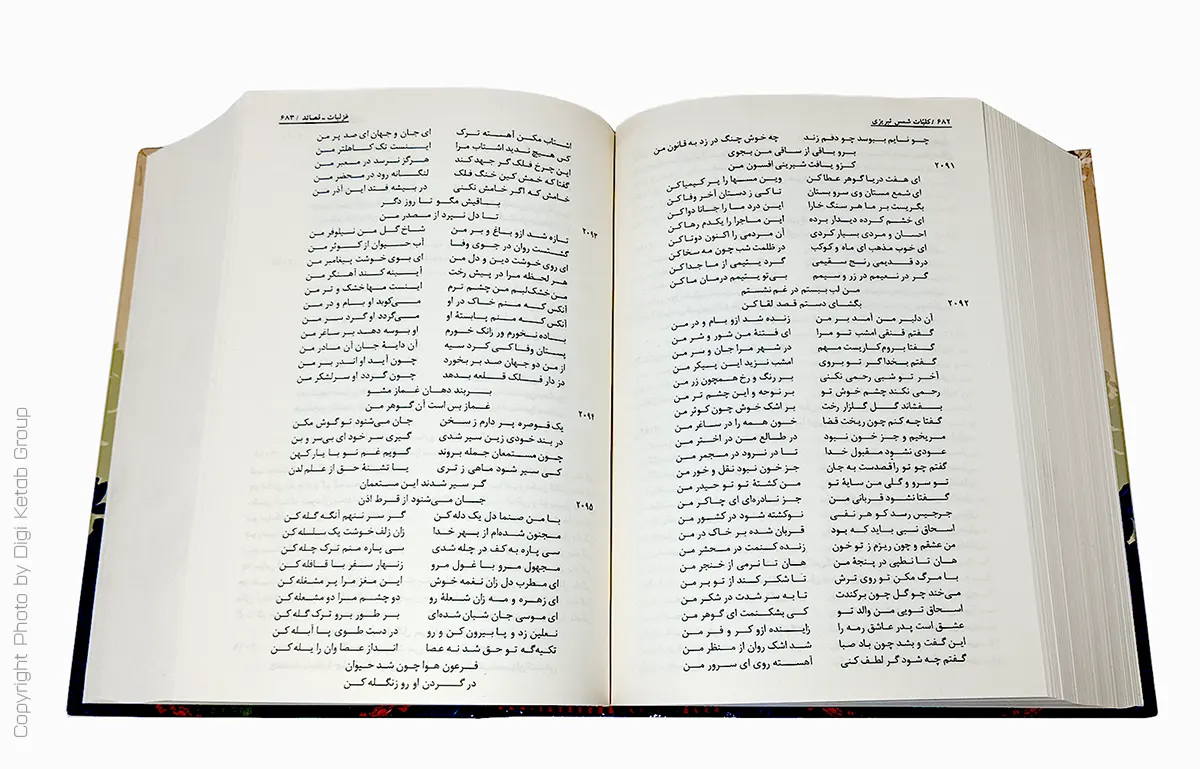 ۶۸۲ / کلیّات شمس تبریزی
چو نایم ببوسد چو دفم زند چه خوش چنگ در زد به قانون من
سرو باقی از ساقی من بجوی
کزو یافت شیرینی افسون من
۲۰۹۱
ای هفت دریا گوهر عطا کن وین مسها را پر کیمیا کن
ای شمع مستان وی سرو بستان تا کی ز دستان آخر وفا کن
بگریست بر ما هر سنگ خارا این درد ما را جانا دوا کن
ای خشم کرده دیدار برده این ماجرا را یکدم رها کن
احسان و مردی بسیار کردی آن مردمی را اکنون دوتا کن
ای خوب مذهب ای ماه و کوکب در ظلمت شب چون مه سخا کن
درد قدیمی رنج سقیمی گرد یتیمی از ما جدا کن
گر در نعیمم در زر و سیمم بی‌تو یتیمم درمان ما کن
من لب ببستم در غم نشستم
بگشای دستم قصد لقا کن
۲۰۹۲
آن دلبر من آمد بر من زنده شد ازو بام و در من
گفتم قنقی امشب تو مرا ای فتنهٔ من شور و شر من
گفتا بروم کاریست مهم در شهر مرا جان و سر من
گفتم بخدا گر تو بروی امشب نزید این پیکر من
آخر تو شبی رحمی نکنی بر رنگ و رخ همچون زر من
رحمی نکند چشم خوش تو بر نوحه و این چشم تر من
بفشاند گل گلزار رخت بر اشک خوش چون کوثر من
گفتا چه کنم چون ریخت قضا خون همه را در ساغر من
مریخیم و جز خون نبود در طالع من در اختر من
عودی نشود مقبول خدا تا در نرود در مجمر من
گفتم چو تو را قصدست به جان جز خون نبود نقل و خور من
تو سرو و گلی من سایهٔ تو من کشتهٔ تو تو حیدر من
گفتا نشود قربانی من جز نادره‌ای ای چاکر من
جرجیس رسد کو هر نفسی نوکشته شود در کشور من
اسحاق نبی باید که بود قربان شده بر خاک در من
من عشقم و چون ریزم ز تو خون زنده کنمت در محشر من
هان تا نطپی در پنجهٔ من هان تا نرمی از خنجر من
با مرگ مکن تو روی ترش تا شکر کند از تو بر من
می‌خند چو گل چون برکندت تا به سر شدت در شکر من
اسحاق تویی من والد تو کی بشکنمت ای گوهر من
عشق است پدر عاشق رمه را زاینده ازو کر و فر من
این گفت و بشد چون باد صبا شد اشک روان از منظر من
گفتم چه شود گر لطف کنی آهسته روی ای سرور من
غزلیات ـ قصائد / ۶۸۳
اشتاب مکن آهسته ترک ای جان و جهان ای صد پر من
کس هیچ ندید اشتاب مرا اینست تک کاهلتر من
این چرخ فلک گر جهد کند هرگز نرسد در معبر من
گفتا که خمش کین خنگ فلک لنگانه رود در محضر من
خامش که اگر خامش نکنی در بیشه فتد این آذر من
باقیش مگو تا روز دگر
تا دل نپرد از مصدر من
۲۰۹۳
تازه شد ازو باغ و بر من شاخ گل من نیلوفر من
گشتست روان در جوی وفا آب حیوان از کوثر من
ای روی خوشت دین و دل من ای بوی خوشت پیغامبر من
هر لحظه مرا در پیش رخت آیینه کند آهنگر من
من خشک‌لبم من چشم ترم اینست مها خشک و تر من
آنکس که منم خاک در او می‌کوبد او بام و در من
آنکس که منم پابستهٔ او می‌گردد او گرد سر من
باده نخورم ور زانک خورم او بوسه دهد بر ساغر من
پستان وفا کی کرد سیه آن دایهٔ جان آن مادر من
از من دو جهان صد بر بخورد چون آید او اندر بر من
دزدار فلک قلعه بدهد چون گردد او سرلشکر من
بربند دهان غماز مشو
غماز بس است آن گوهر من
۲۰۹۴
یک قوصره پر دارم ز سخن جان می‌شنود تو گوش مکن
در بند خودی زین سیر شدی گیری سر خود ای بی‌سر و بن
چون مستمعان جمله بروند گویم غم نو با یار کهن
کی سیر شود ماهی ز تری یا تشنهٔ حق از علم لدن
گر سیر شدند این مستمعان
جان می‌شنود از قرط اذن
۲۰۹۵
با من صنما دل یک دله کن گر سر ننهم آنگه گله کن
مجنون شده‌ام از بهر خدا زان زلف خوشت یک سلسله کن
سی پاره به کف در چله شدی سی پاره منم ترک چله کن
مجهول مرو با غول مرو زنهار سفر با قافله کن
ای مطرب دل زان نغمه خوش این مغز مرا پر مشغله کن
ای زهره و مه زان شعله رو دو چشم مرا دو مشعله کن
ای موسی جان شبان شده‌ای بر طور برو ترک گله کن
نعلین ز دو پا بیرون کن و رو در دست طوی پا آبله کن
تکیه‌گه تو حق شد نه عصا انداز عصا وان را یله کن
فرعون هوا چون شد حیوان
در گردن او رو زنگله کن
Copyright Photo by Digi Ketab Group